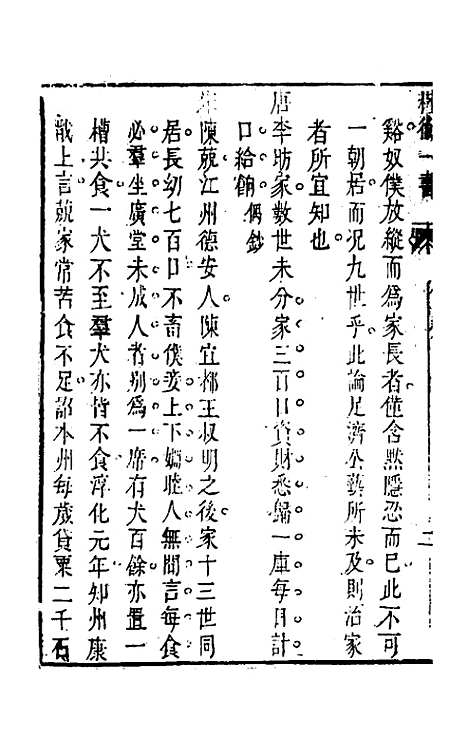 谿奴僕放縱而爲家長者僅含黙隱忍而已此不可
一朝居而況九世乎此論足濟公藝所未及則治家
者所宜知也
唐李昉家數世未分家三百口資財悉歸一庫每日計
口給餉偶鈔
陳兢江州德安人陳宜都王叔明之後家十三世同
居長幼七百口不畜僕妾上下婣睦人無間言每食
必羣坐廣堂未成人者别爲一席有犬百餘亦置一
槽共食一犬不至羣犬亦皆不食淳化元年知州康
戩上言兢家常苦食不足詔本州每歲貸粟二千石